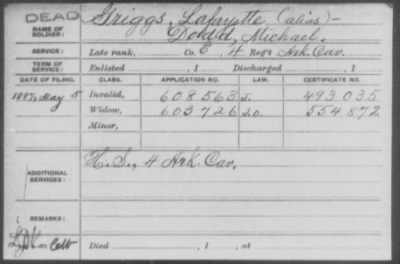 DEAD
NAME OF SOLDIER:
Griggs, Lafayette (alias)-
Michael.
SERVICE:
Late rank, Co. E, 4 Reg't Ark. Cav.
TERM OF SERVICE:
Enlisted , 1 Discharged , 1
DATE OF FILING. CLASS. APPLICATION NO. LAW. CERTIFICATE NO.
1897, May 5 Invalid, 608.563 493.035
Widow, 603.726 554.872
Minor,
ADDITIONAL SERVICES:
H. S., 4 Ark. Cav.
REMARKS:
Died , 1 , at